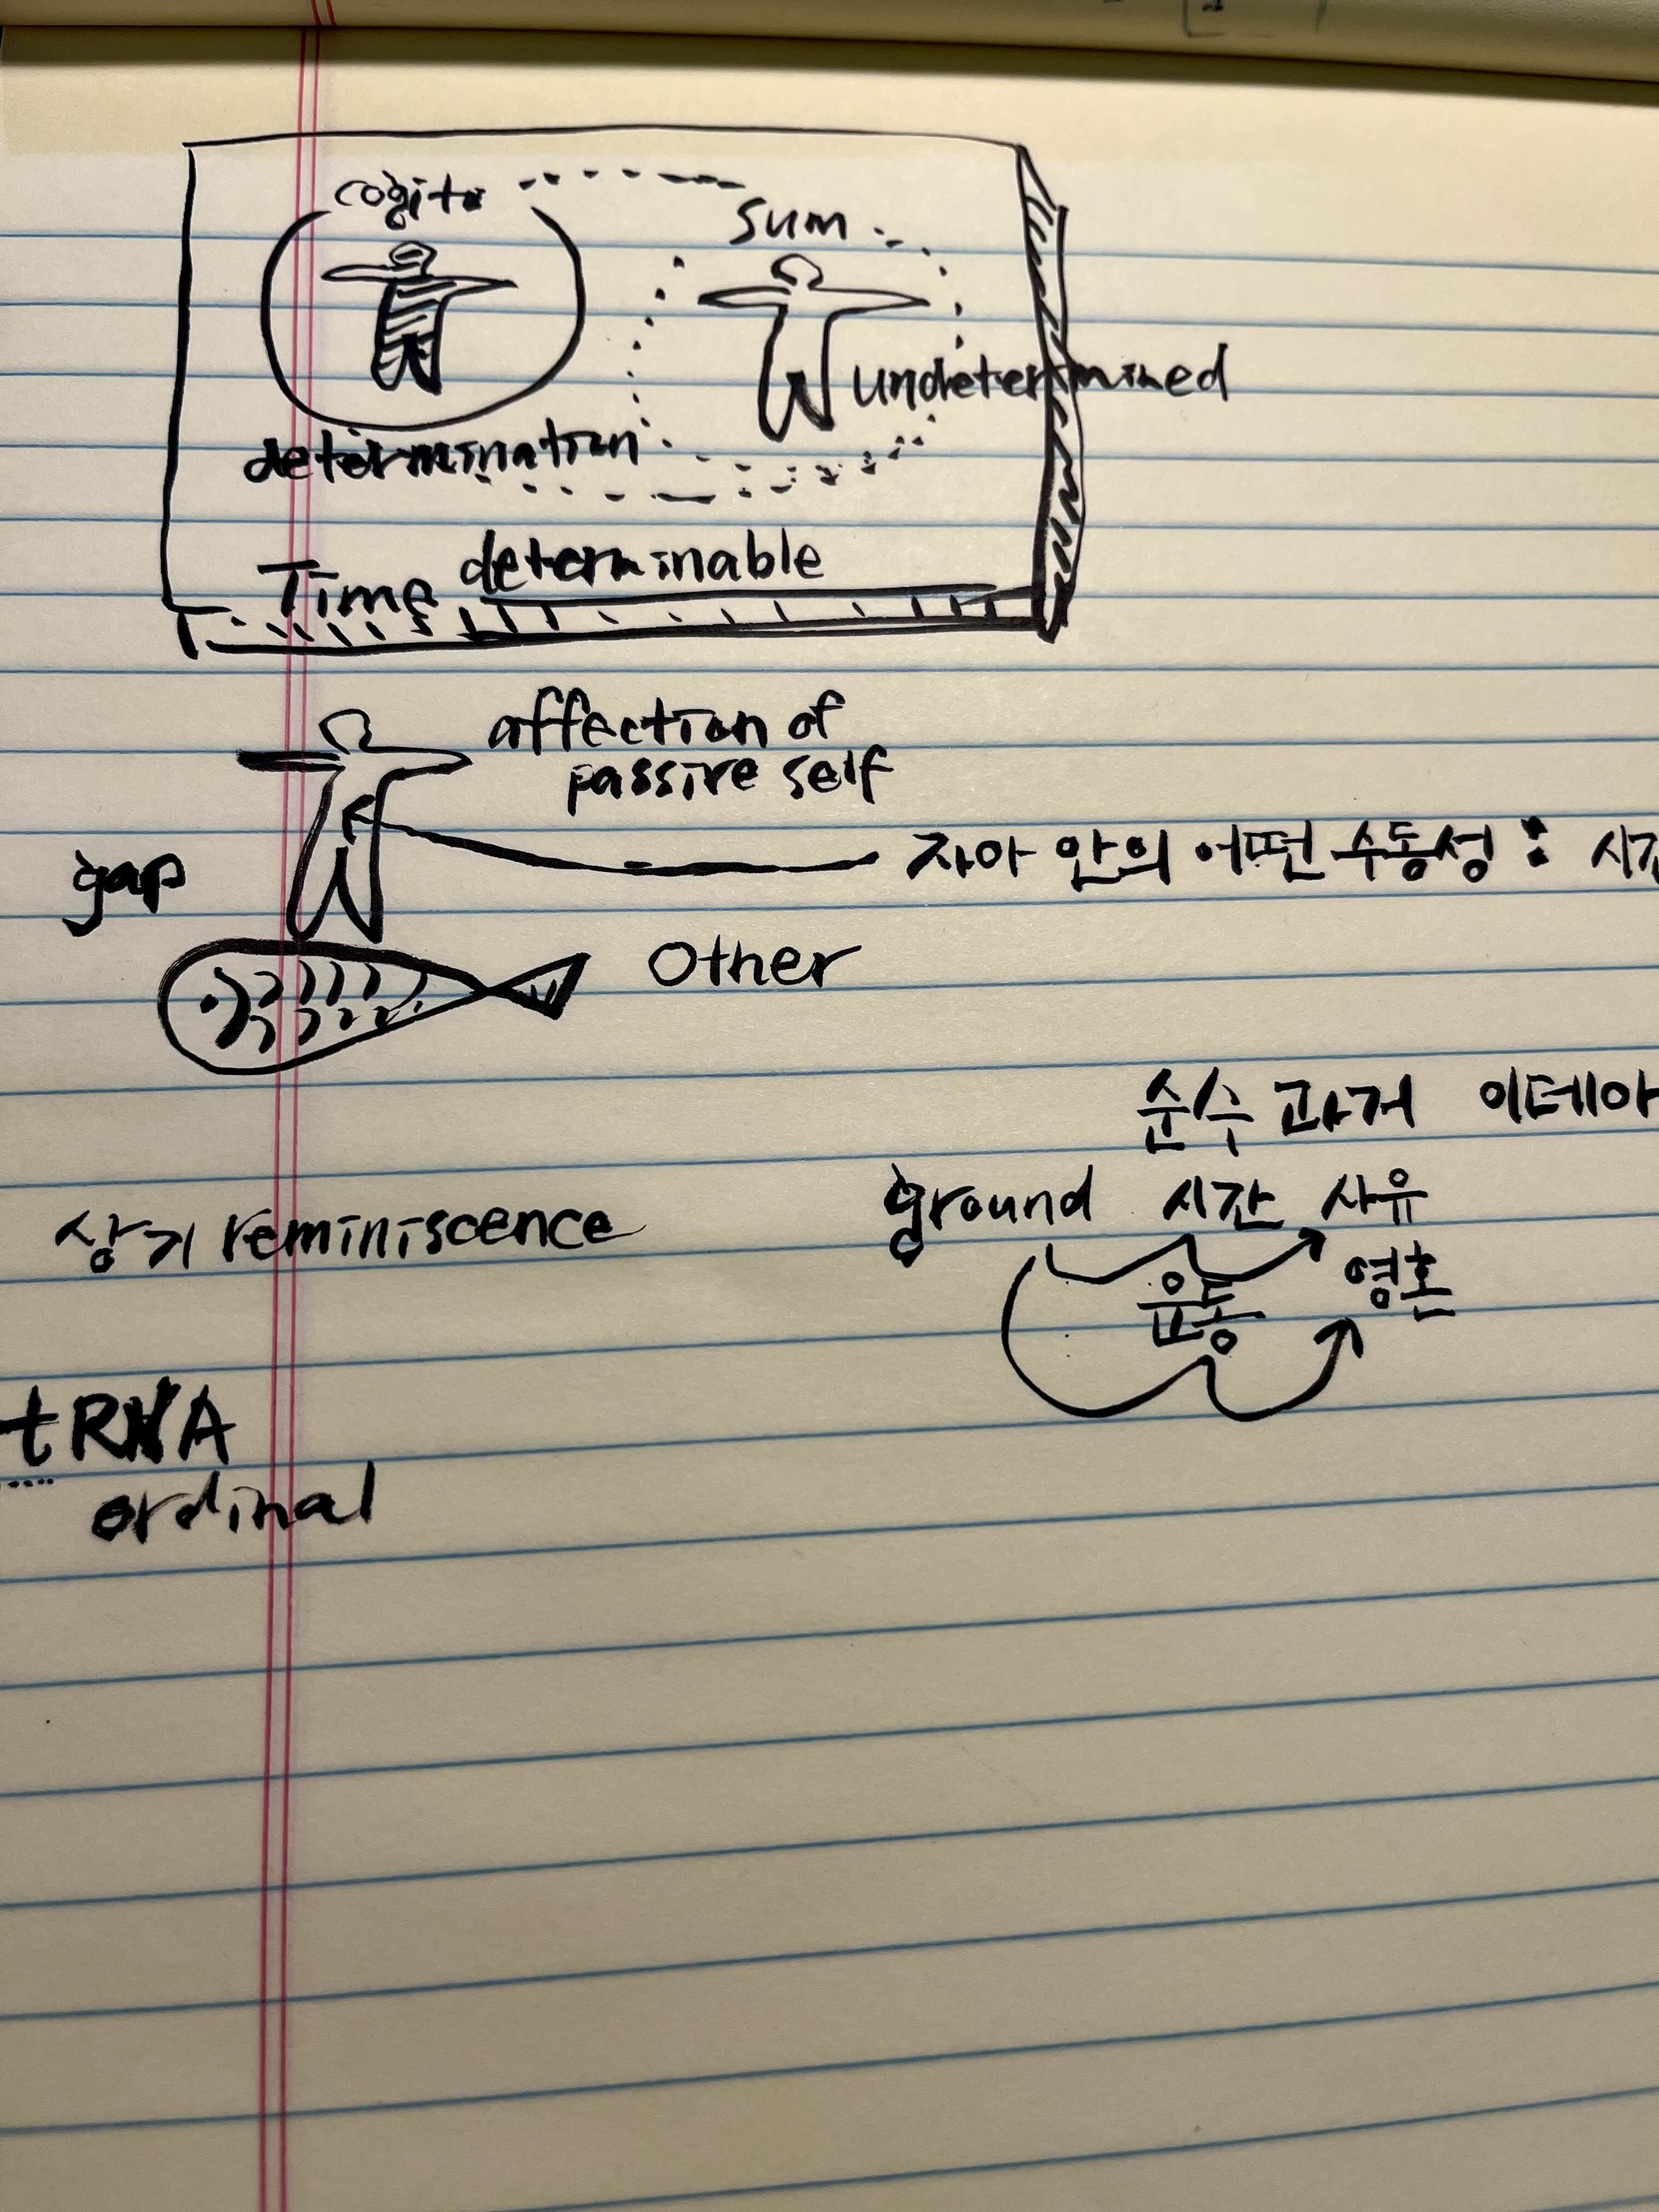 cogito
sum
undetermined
determination
determinable
Time
affection of
passive self
자아 안의 어떤 수동성 : 시간
gap
Other
순수 과거 이데아
ground 시간 사유
상기 reminiscence
운동 영혼
tRNA
ordinal